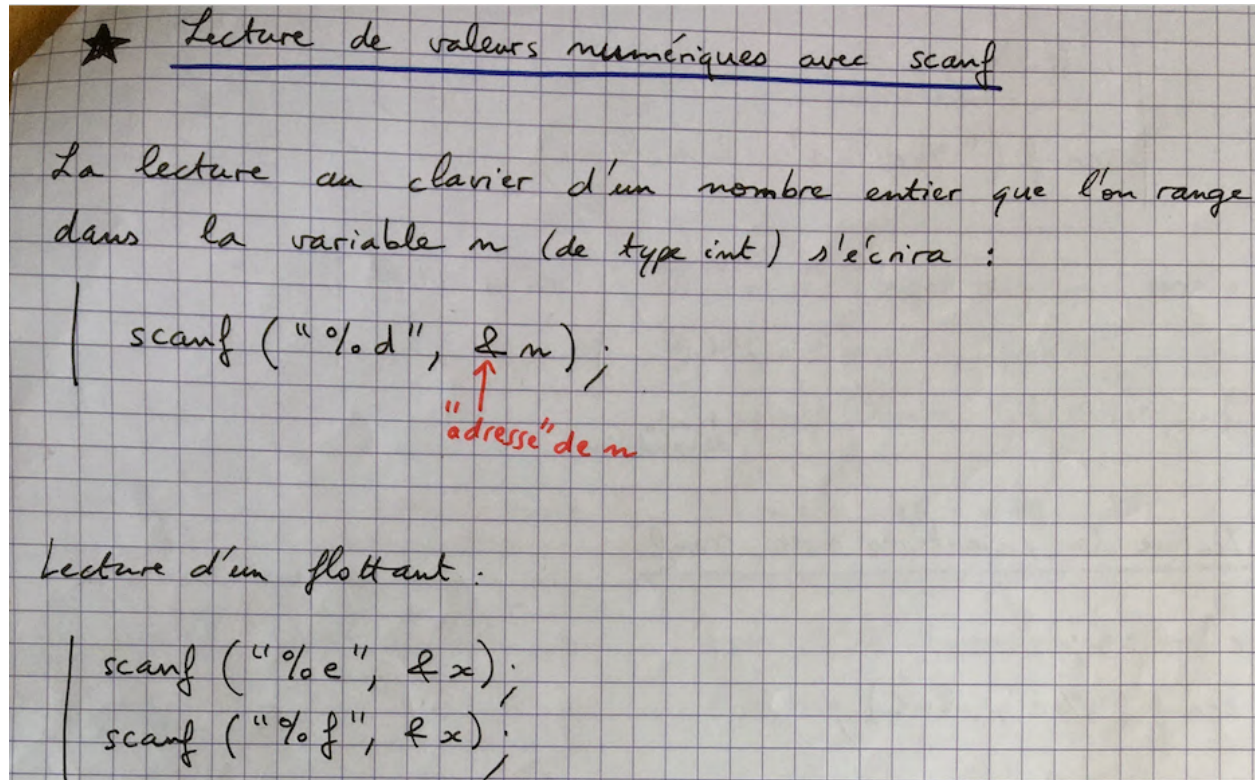 ★ Lecture de valeurs numériques avec scanf
La lecture au clavier d'un nombre entier que l'on range
dans la variable n (de type int) s'écrira :
scanf ("%d", &n);
"adresse" de n
Lecture d'un flottant :
scanf ("%e", &x);
scanf ("%f", &x);